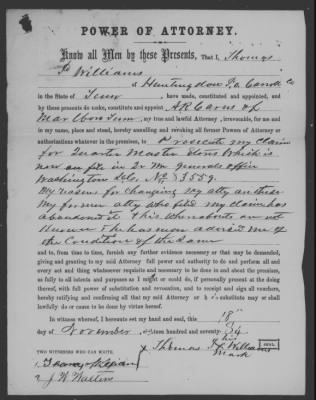 POWER OF ATTORNEY.
Know all Men by these Presents, That I, Thomas
Williams
of Huntingdon P.o. Carroll Co
in the State of Tenn, have made, constituted and appointed, and
by these presents do make, constitute and appoint A R Carns of
my true and lawful Attorney, irrevocable, for me and
in my name, place and stead, hereby annulling and revoking all former Powers of Attorney or
authorizations whatever in the premises, to Prosecute my Claim
for Quarter Master Stores Which is
now on file in Qr M. Generals office
Washington
My reason for changing my atty
My former atty who filed my claim has
abandoned it & his Whereabouts are not
Known & he has never advised me of
the Condition of the same
and to, from time to time, furnish any further evidence necessary or that may be demanded,
giving and granting to my said Attorney full power and authority to do and perform all and
every act and thing whatsoever requisite and necessary to be done in and about the premises,
as fully to all intents and purposes as I might or could do, if personally present at the doing
thereof, with full power of substitution and revocation, and to receipt and sign all vouchers,
hereby ratifying and confirming all that my said Attorney or his substitute may or shall
lawfully do or cause to be done by virtue hereof.
In witness whereof, I hereunto set my hand and seal, this 18"
day of November, eighteen hundred and seventy
his
Thomas X Williams
mark
SEAL
TWO WITNESSES WHO CAN WRITE.
1
2 J W Walters